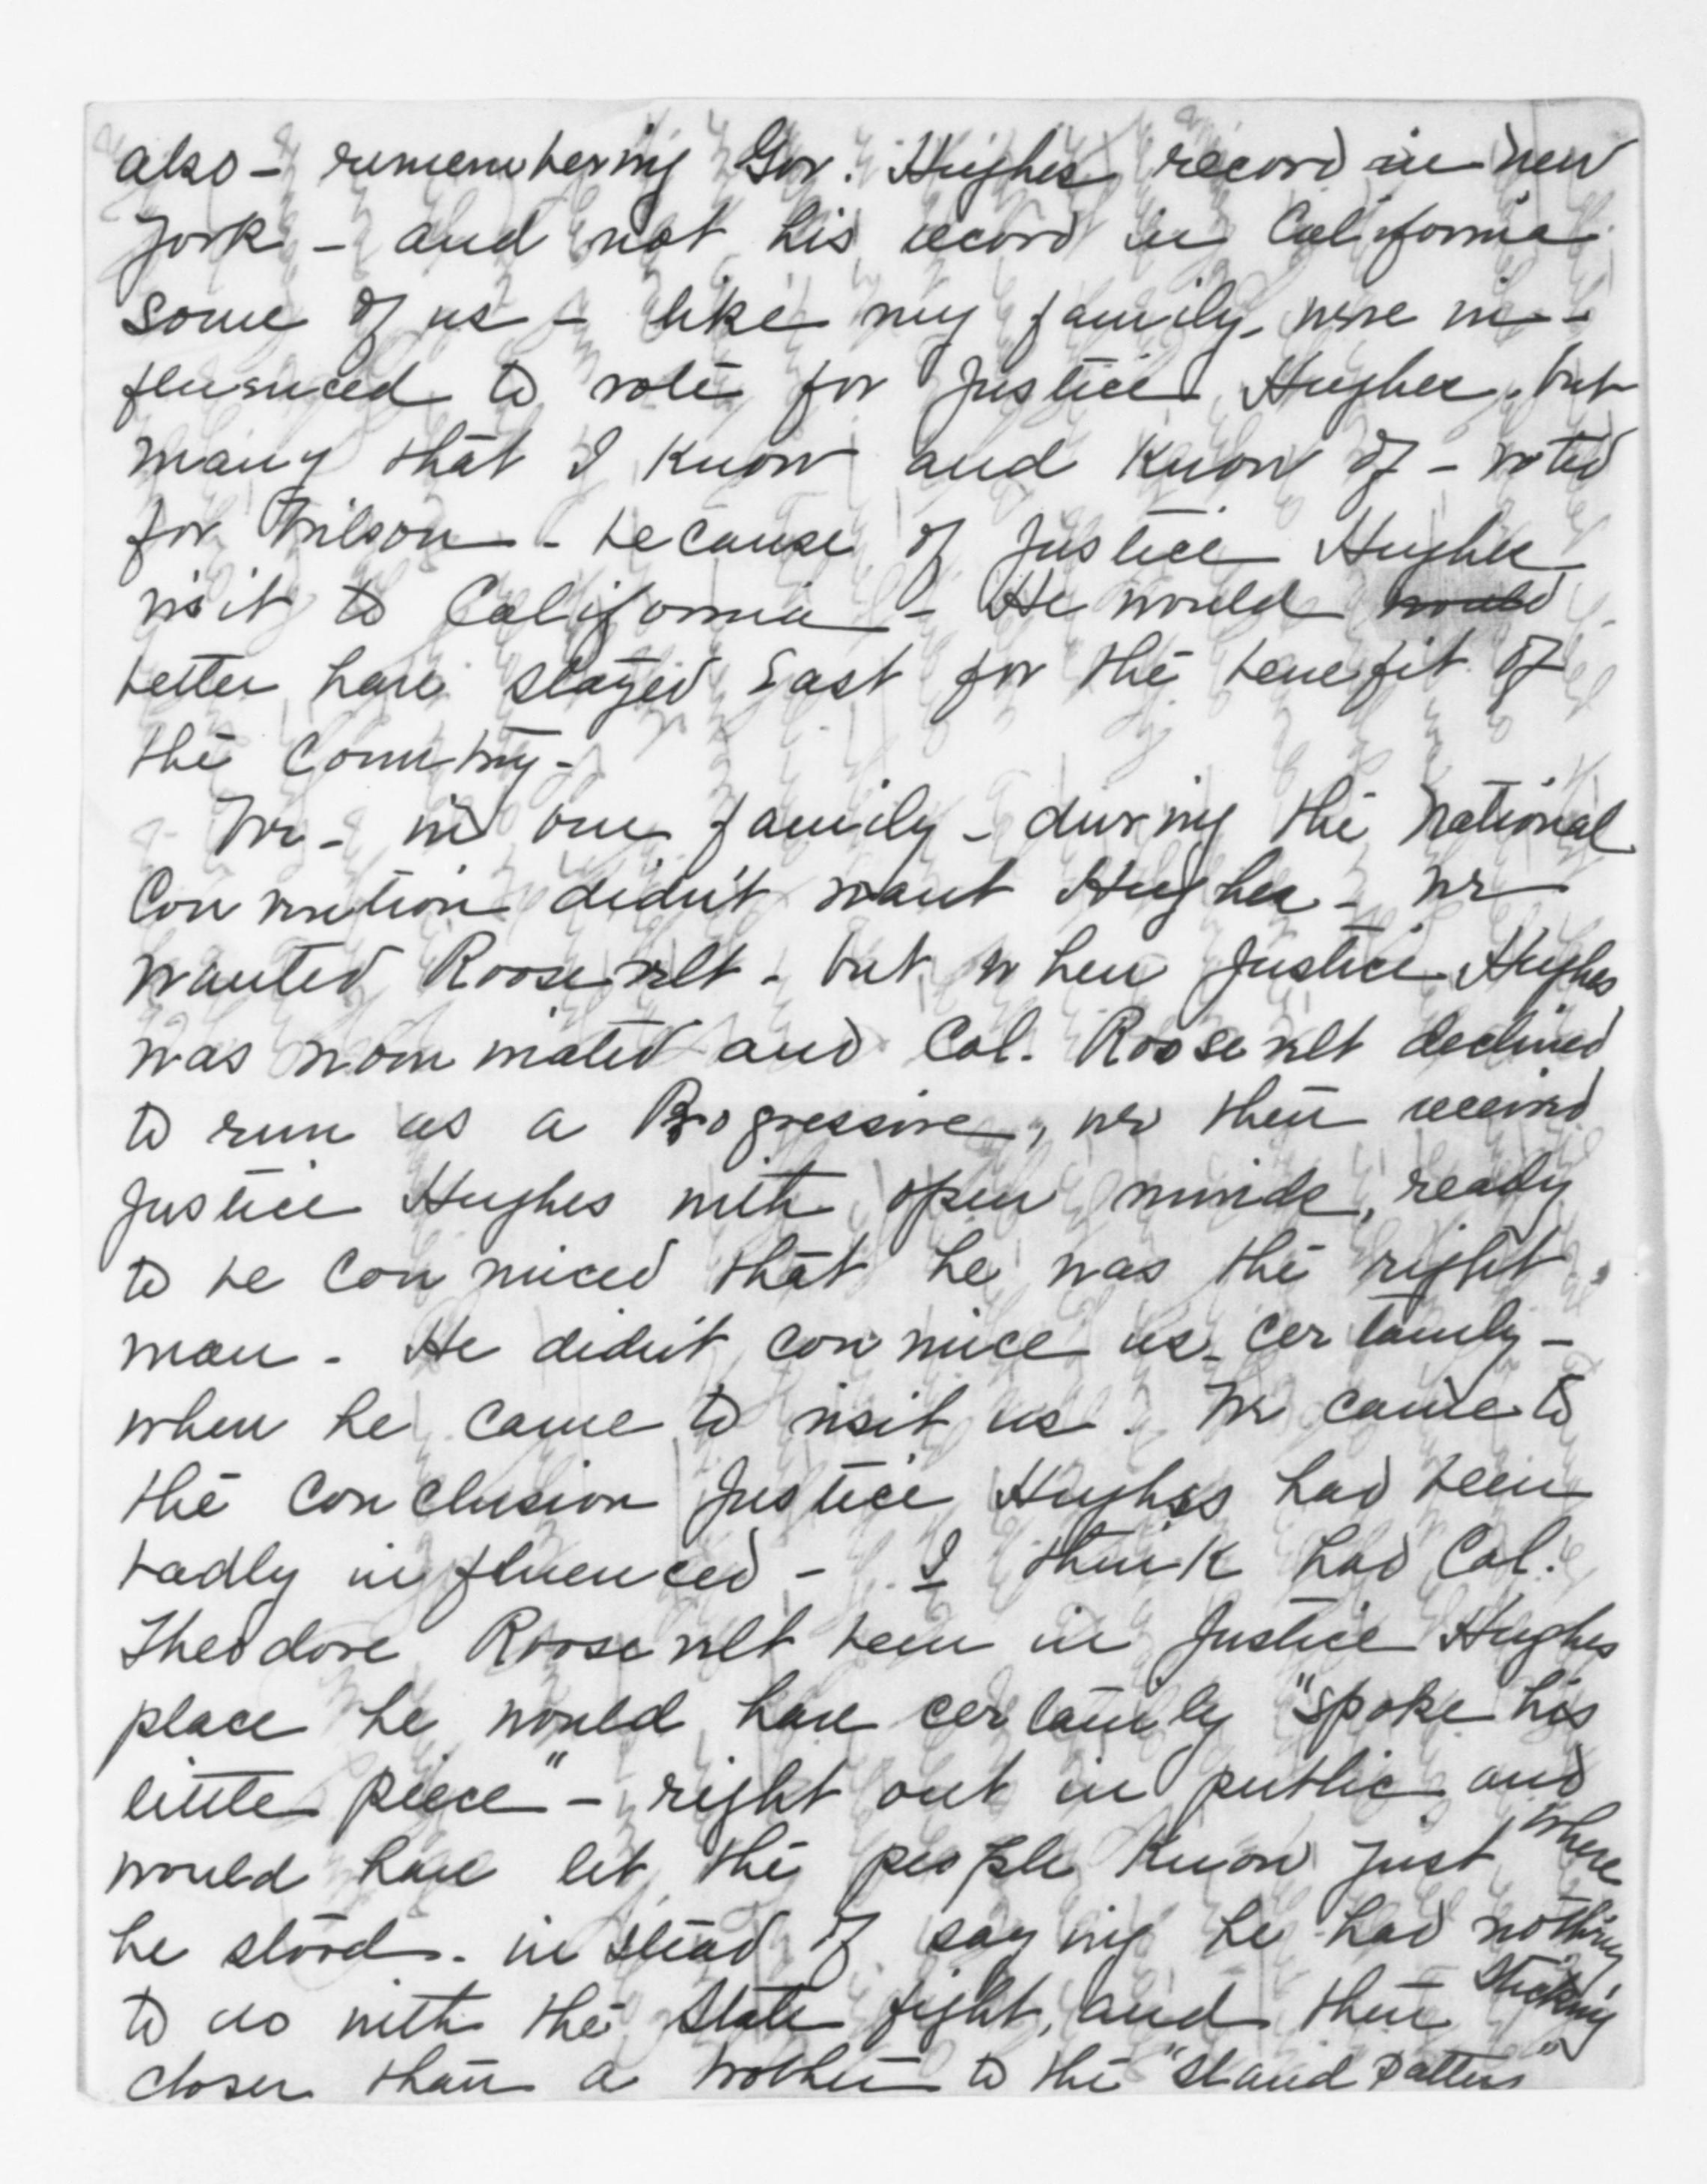 also - remembering Gov. Hughes record in New
York - and not his record in California
some of us - like my family - were in-
fluenced to vote for Justice Hughes. but
many that I know and know of - voted
for Wilson - because of Justice Hughes
visit to California - He would would
better have stayed East for the benefit of
the Country -
We - in our family - during the National
Convention didn't want Hughes - we
wanted Roosevelt - but when Justice Hughes
was nominated and Col. Roosevelt declined
to run as a Progressive, we then received
Justice Hughes with open minds, ready
to be convinced that he was the right
man - He didn't convince us - certainly -
when he came to visit us. We came to
the conclusion Justice Hughes had been
badly influenced - I think had Col.
Theodore Roosevelt been in Justice Hughes
place he would have certainly "spoke his
little piece" - right out in public and
would have let the people know just where
he stood - instead of saying he had nothing
to do with the State fight, and then sticking
closer than a brother to the "Stand Patters"